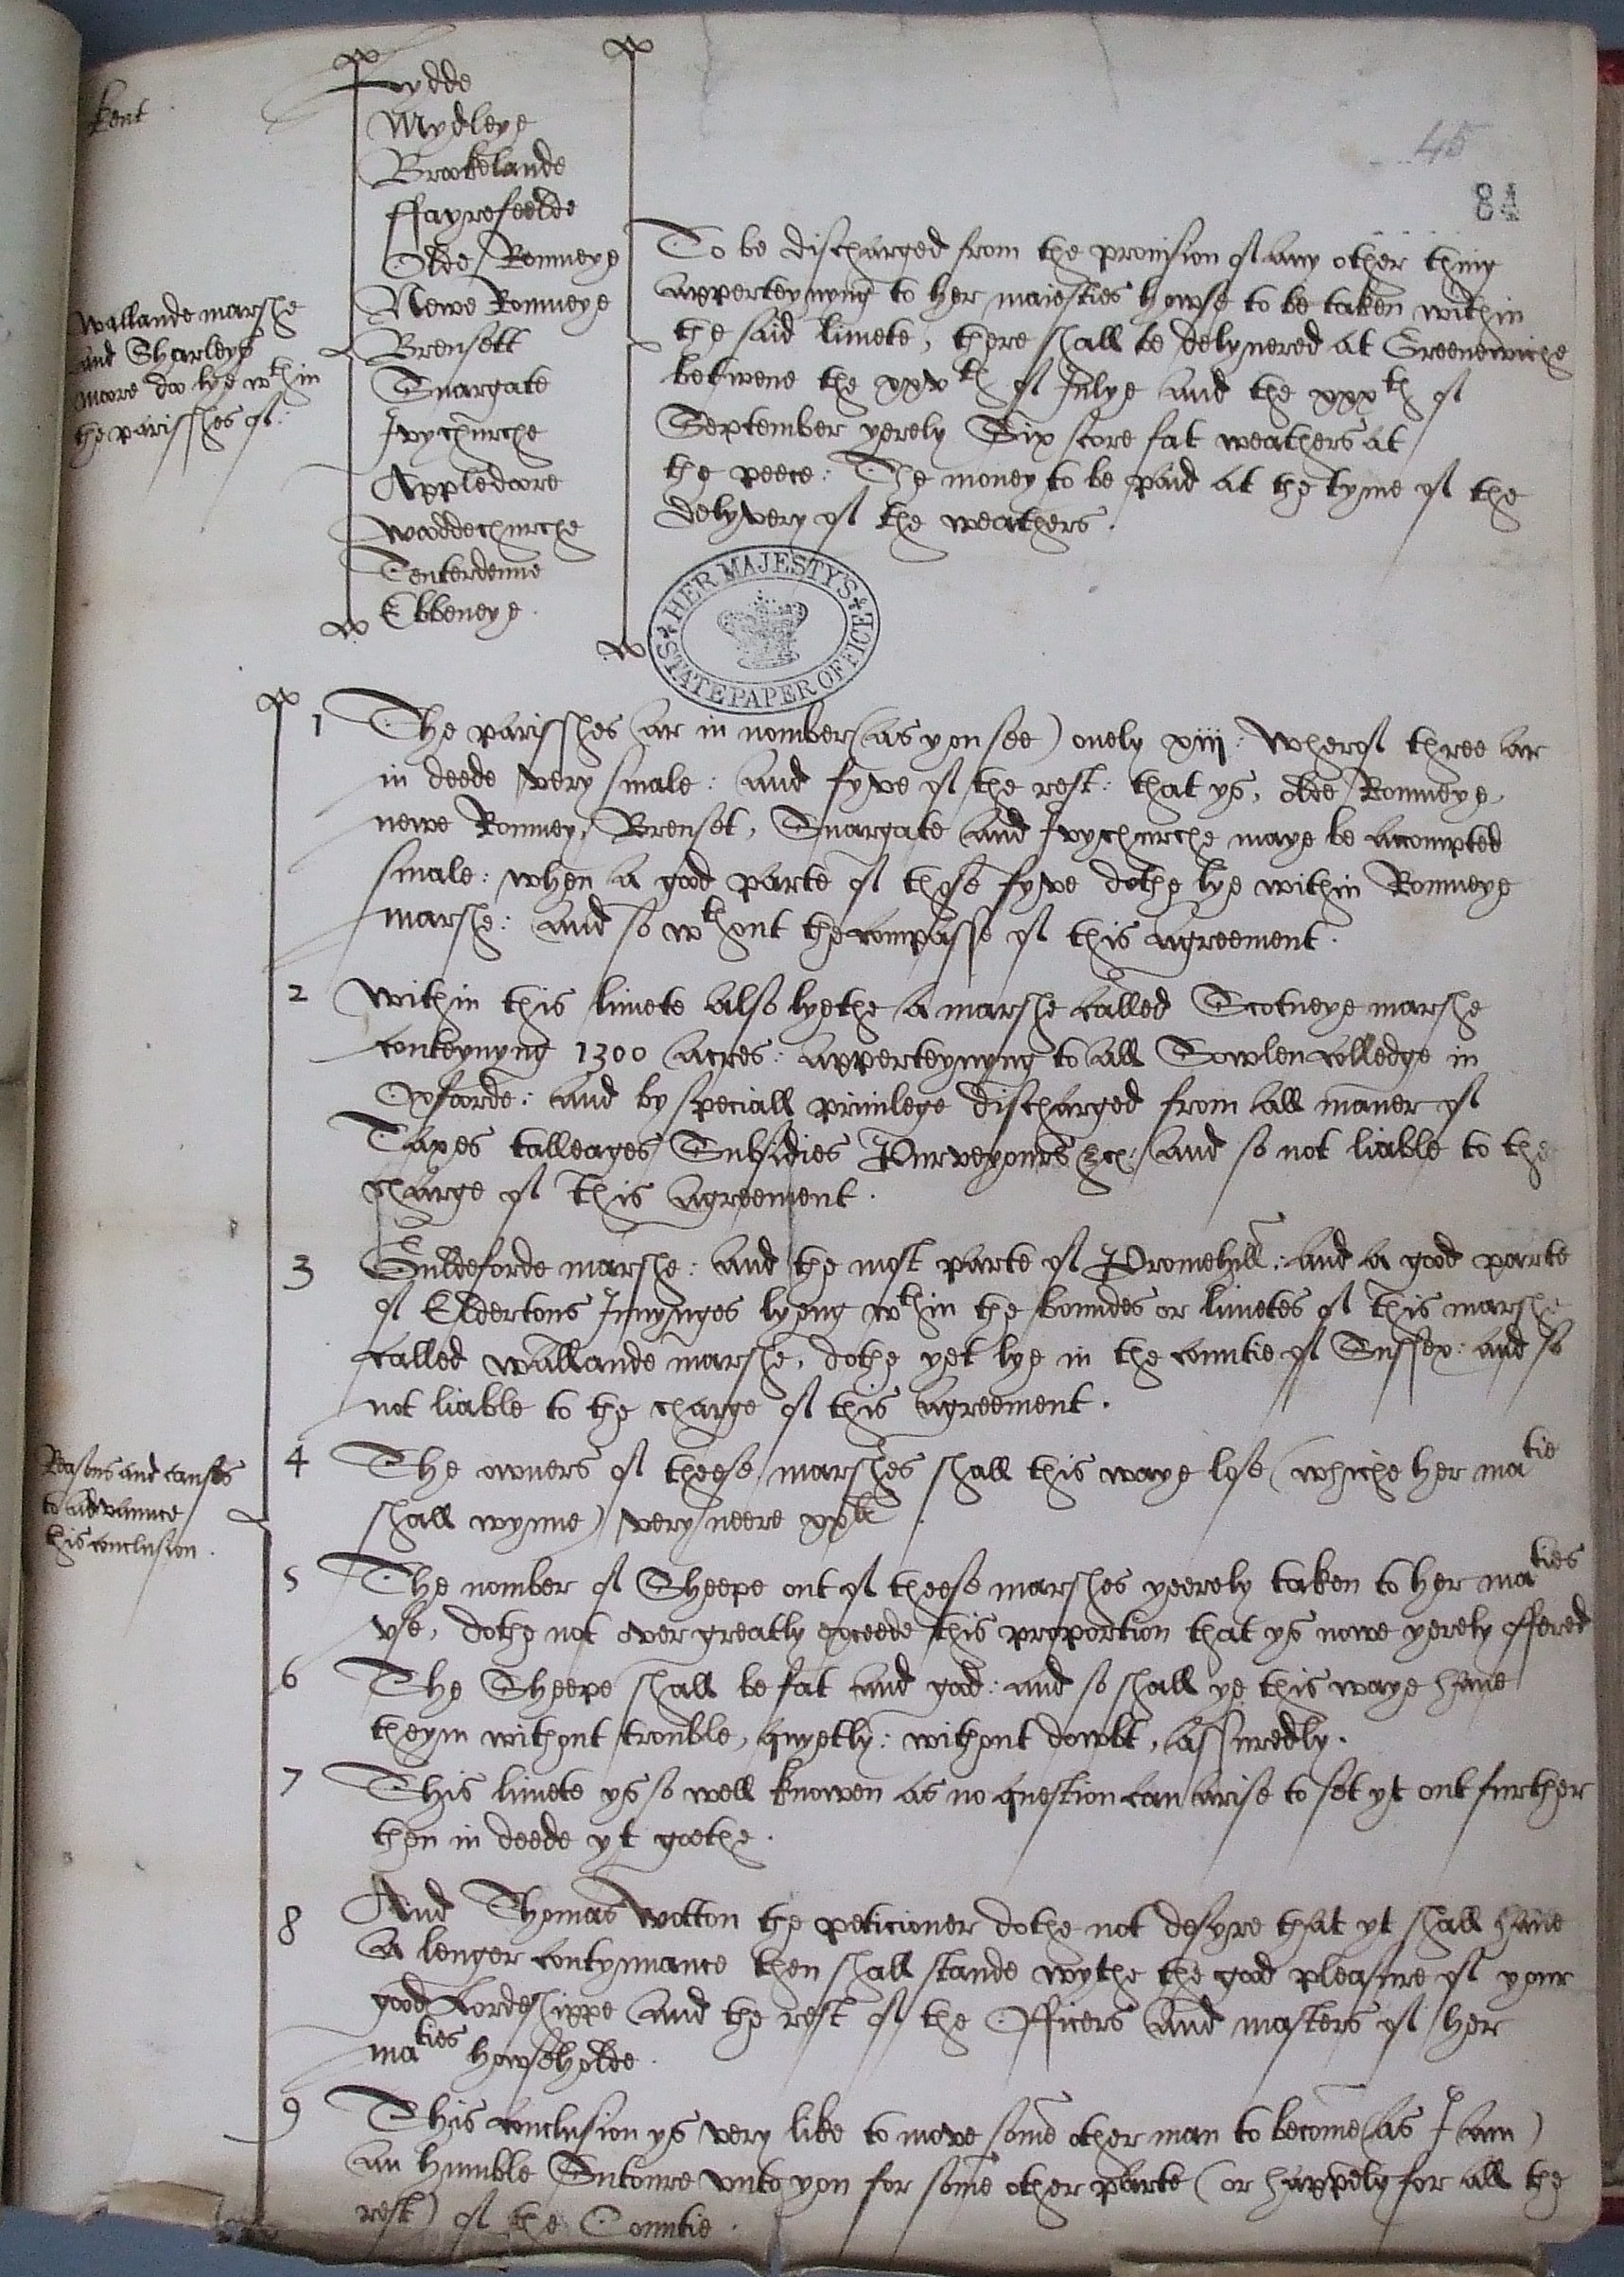 Kent
Lydde
Mydleye
Brookelande
ffayrefeelde
Olde Romneye
Newe Romneye
Brensett
Snargate
Ivychurche
Appledoore
Wooddechurche
Tenterdenne
Ebbeneye.
45
84
Wallande marshe
and Sharleys
moore doo lye wthin
the parisshes of:
To be discharged from the provision of any other thing
apperteynyng to her maiesties howse to be taken within
the said limete, there shall be delyuered at Greenewiche
betwene the xxvth of Iulye and the xxxth of
September yerely Six score fat weathers at
the peece: The money to be paid at the tyme of the
delyvery of the weathers.
HER MAJESTY'S
STATE PAPER OFFICE
1 The parisshes ar in nomber (as you see) onely xiij: Wherof three ar
in deede very smale: and fyve of the rest: that ys, olde Romneye,
newe Romney, Brenset, Snargate and Ivychurche maye be accompted
smale: when a good parte of those fyve dothe lye within Romneye
marshe: and so wthout the compasse of this agreement.
2 Within this limete also lyethe a marshe called Scotneye marshe
conteynyng 1300 acres: apperteynyng to all Sowlen colledge in
Oxforde: and by speciall priuilege discharged from all maner of
Taxes talleages Subsidies Purveyours &c: and so not liable to the
charge of this agreement.
3 Guldeforde marshe: and the most parte of Promehill: and a good parte
of Eldertons Innynges lyeng wthin the boundes or limetes of this marshe
called Wallande marshe, dothe yet lye in the countie of Sussex: and so
not liable to the charge of this agreement.
Reasons and causes
to advaunce
this conclusion.
4 The owners of theese marshes shall this waye lose (whiche her matie
shall wynne) very neere xxli.
5 The nomber of Sheepe out of theese marshes yeerely taken to her maties
vse, dothe not over greatly exceede this proportion that ys nowe yerely offered
6 The Sheepe shall be fat and good: and so shall ye this waye haue
theym without trouble, quyetly: without dowbt, assuredly.
7 This limete ys so well knowen as no question can arise to set yt out further
then in deede yt goethe.
8 And Thomas Wotton the peticioner dothe not desyre that yt shall haue
a lenger contynuance then shall stande wythe the good pleasure of your
good Lordeshippe and the rest of the Officers and masters of her
maties howseholde.
9 This conclusion ys very like to move some other man to become (as I am)
an humble Sutoure vnto you for some other parte (or happely for all the
rest) of the Countie.